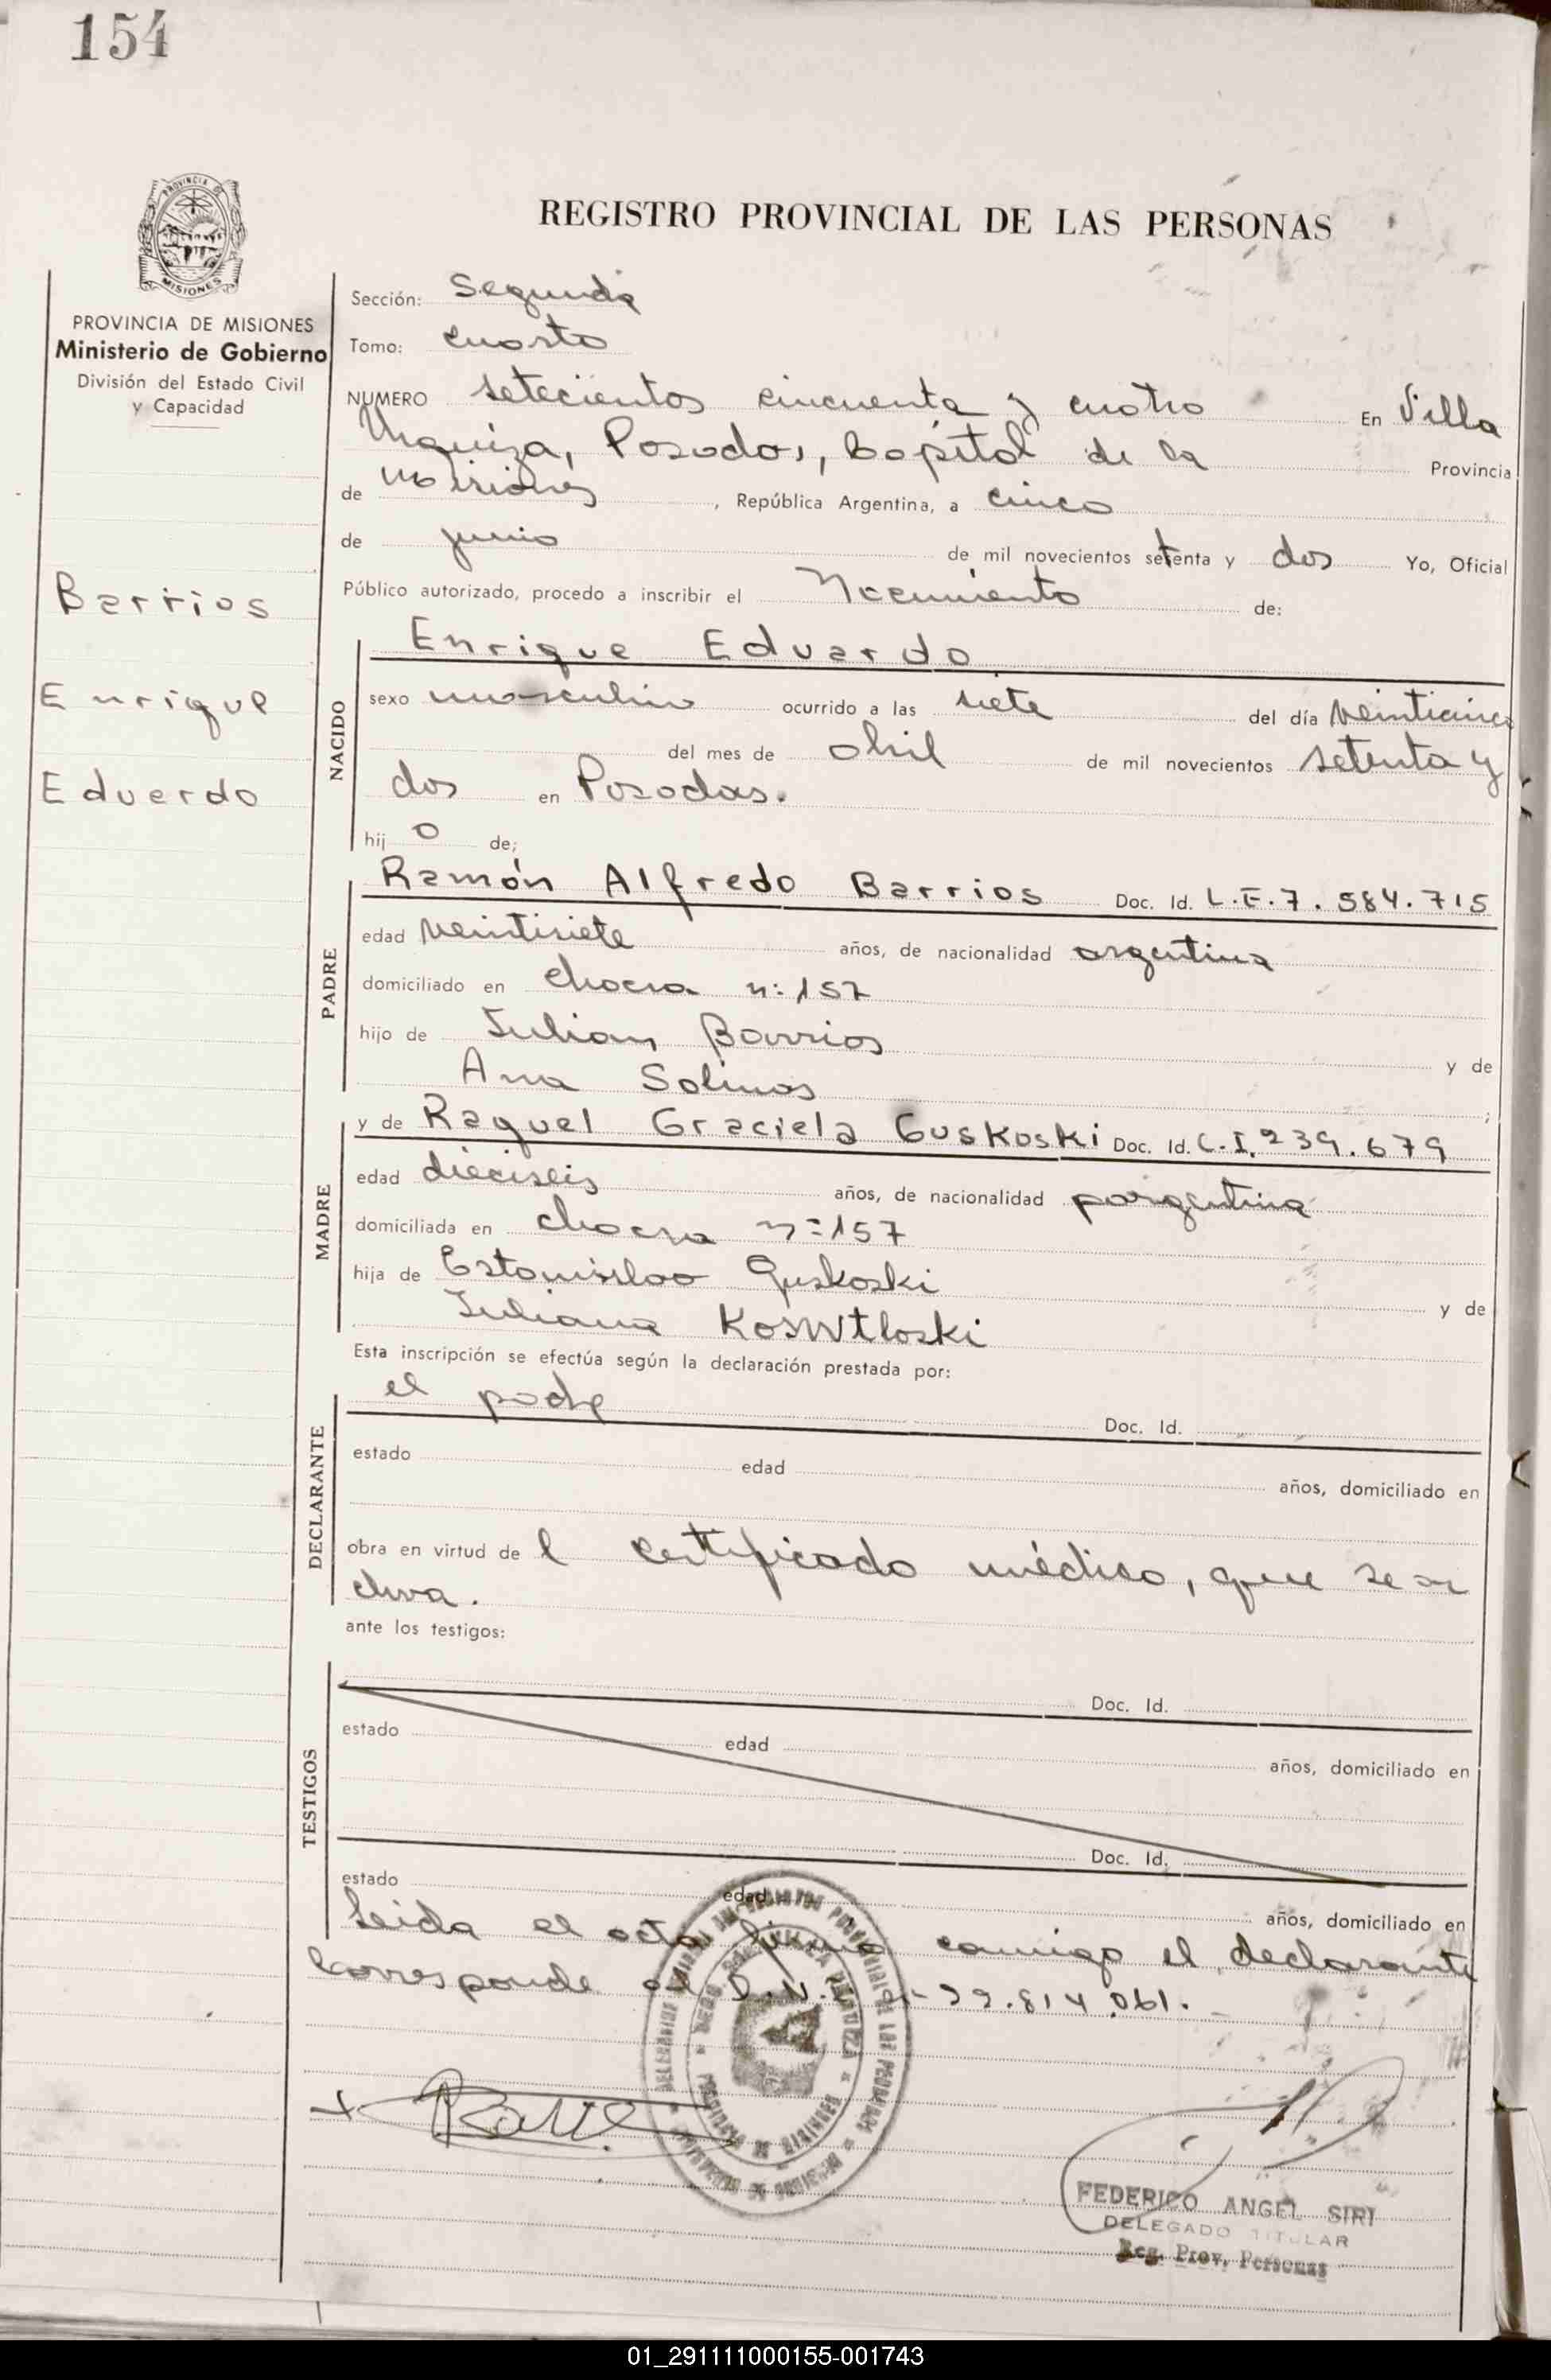 154
PROVINCIA DE
MISIONES
REGISTRO PROVINCIAL DE LAS PERSONAS
PROVINCIA DE MISIONES
Ministerio de Gobierno
División del Estado Civil
y Capacidad
Barrios
Enrique
Eduardo
Sección: Segunda
Tomo: cuarto
NUMERO setecientos cincuenta y cuatro En Villa
Urquiza, Posadas, Capital de la Provincia
de Misiones, República Argentina, a cinco
de junio de mil novecientos setenta y dos Yo, Oficial
Público autorizado, procedo a inscribir el Nacimiento de:
NACIDO
Enrique Eduardo
sexo masculino ocurrido a las siete del día veinticinco
del mes de abril de mil novecientos setenta y
dos en Posadas.
hij o de;
PADRE
Ramón Alfredo Barrios Doc. Id. L.E.7.584.715
edad veintisiete años, de nacionalidad argentina
domiciliado en chacra n: 157
hijo de Julian Barrios y de
Ana Solinas ;
MADRE
y de Raquel Graciela Guskoski Doc. Id. C.I. 239.679
edad dieciseis años, de nacionalidad argentina
domiciliada en chacra n=157
hija de Estanislao Guskoski y de
Juliana Koswtloski
Esta inscripción se efectúa según la declaración prestada por:
DECLARANTE
el padre Doc. Id.
estado edad años, domiciliado en
obra en virtud de l certificado médico, que se ar
chiva.
ante los testigos:
TESTIGOS
Doc. Id.
estado edad años, domiciliado en
Doc. Id.
estado edad años, domiciliado en
Leida el acta firma conmigo el declarante
Corresponde al D.N.I. 22.814.061.
FEDERICO ANGEL SIRI
DELEGADO TITULAR
Reg. Prov. Personas
01_291111000155-001743